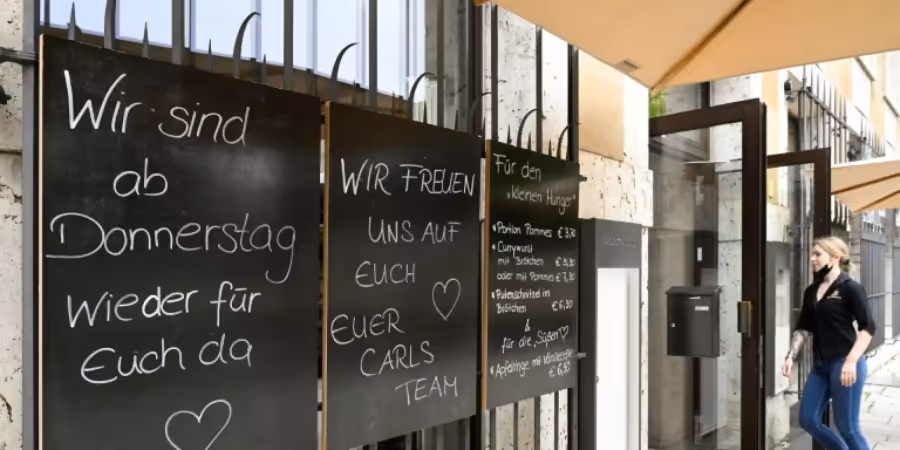 Wir sind
ab
Donnerstag
wieder für
Euch da
WIR FREUEN
UNS AUF
EUCH
EUER
CARLS
TEAM
Für den
„kleinen Hunger"
• Portion Pommes
• Currywurst
mit Brötchen
oder mit Pommes
• Putenschnitzel im
Brötchen
&
für die „Süßen"
• Apfelringe mit
€ 6,90